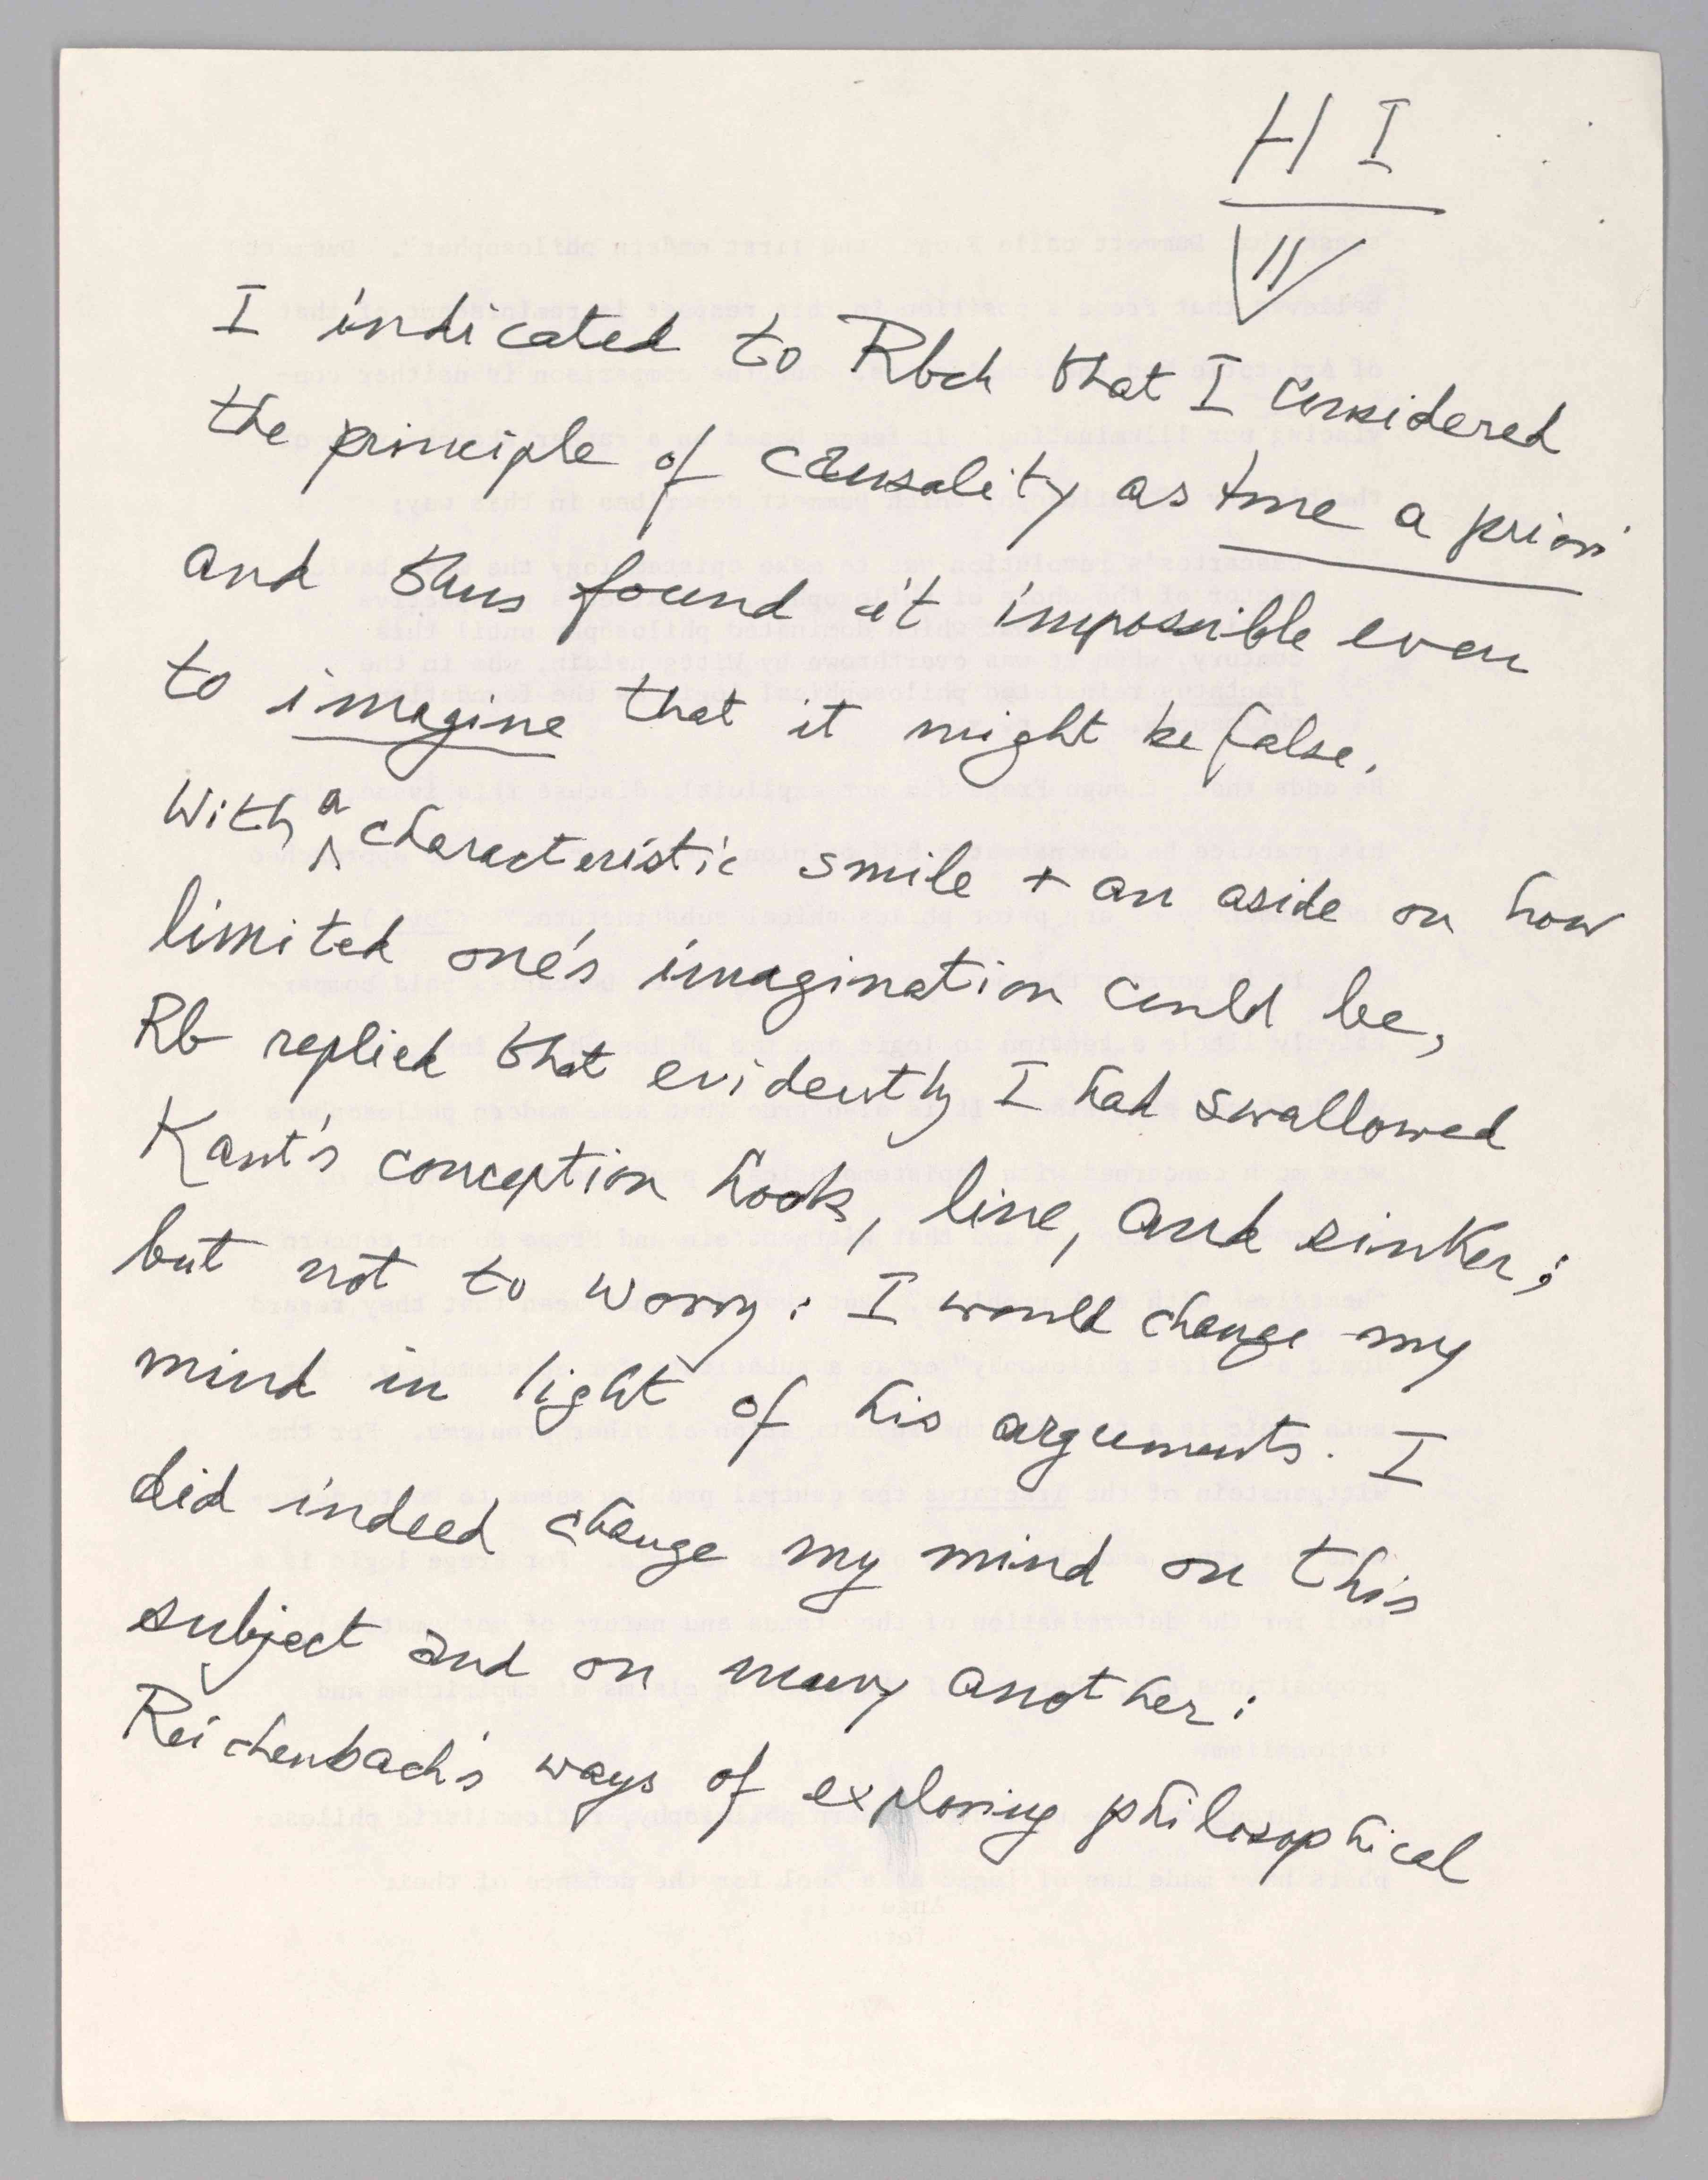 H I
II
I indicated to Rbch that I considered
the principle of causality as true a priori
and thus found it impossible even
to imagine that it might be false.
With a characteristic smile + an aside on how
limited one's imagination could be,
Rb replied that evidently I had swallowed
Kant's conception hook, line, and sinker;
but not to worry: I would change my
mind in light of his arguments. I
did indeed change my mind on this
subject and on many another:
Reichenbach's ways of exploring philosophical